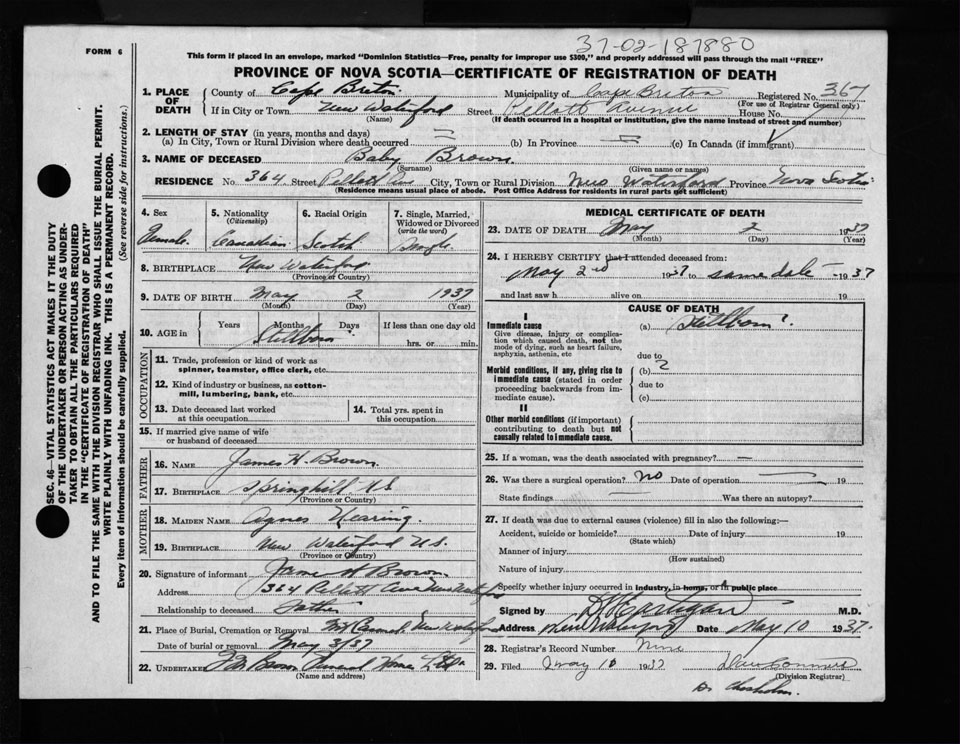 37-02-187880
FORM 6
This form if placed in an envelope, marked "Dominion Statistics—Free, penalty for improper use $300," and properly addressed will pass through the mail "FREE"
PROVINCE OF NOVA SCOTIA—CERTIFICATE OF REGISTRATION OF DEATH
1. PLACE OF DEATH County of Cape Breton Municipality of Cape Breton Registered No. 367
(For use of Registrar General only)
If in City or Town New Waterford Street Pellett Avenue House No.
(Name) (If death occurred in a hospital or institution, give the name instead of street and number)
2. LENGTH OF STAY (in years, months and days)
(a) In City, Town or Rural Division where death occurred (b) In Province (c) In Canada (if immigrant)
3. NAME OF DECEASED Baby Brown
(Surname) (Given name or names)
RESIDENCE No. 364 Street Pellett Ave City, Town or Rural Division New Waterford Province Nova Scotia
(Residence means usual place of abode. Post Office Address for residents in rural parts not sufficient)
4. Sex Female
5. Nationality (Citizenship) Canadian
6. Racial Origin Scotch
7. Single, Married, Widowed or Divorced (write the word) Single
8. BIRTHPLACE New Waterford
(Province or Country)
9. DATE OF BIRTH May 2 1937
(Month) (Day) (Year)
10. AGE in Years Months Days If less than one day old
Stillborn hrs. or min.
OCCUPATION
11. Trade, profession or kind of work as spinner, teamster, office clerk, etc.
12. Kind of industry or business, as cotton-mill, lumbering, bank, etc.
13. Date deceased last worked at this occupation
14. Total yrs. spent in this occupation
15. If married give name of wife or husband of deceased
FATHER
16. NAME James H Brown
17. BIRTHPLACE Springhill N.S.
(Province or Country)
MOTHER
18. MAIDEN NAME Agnes Nearing
19. BIRTHPLACE New Waterford N.S.
(Province or Country)
20. Signature of informant James H Brown
Address 364 Pellett Ave New Waterford
Relationship to deceased Father
21. Place of Burial, Cremation or Removal Mt Carmel New Waterford
Date of burial or removal May 3/37
22. UNDERTAKER Brown Funeral Home Ltd
(Name and address)
MEDICAL CERTIFICATE OF DEATH
23. DATE OF DEATH May 2 1937
(Month) (Day) (Year)
24. I HEREBY CERTIFY that I attended deceased from:
May 2nd 1937 to same date 1937
and last saw h alive on 19
CAUSE OF DEATH
I
Immediate cause (a) Stillborn
Give disease, injury or complication which caused death, not the mode of dying, such as heart failure, asphyxia, asthenia, etc
due to
Morbid conditions, if any, giving rise to immediate cause (stated in order proceeding backwards from immediate cause).
(b)
due to
(c)
II
Other morbid conditions (if important) contributing to death but not causally related to immediate cause.
25. If a woman, was the death associated with pregnancy?
26. Was there a surgical operation? No Date of operation 19
State findings Was there an autopsy?
27. If death was due to external causes (violence) fill in also the following:—
Accident, suicide or homicide? Date of injury 19
(State which)
Manner of injury
(How sustained)
Nature of injury
Specify whether injury occurred in industry, in home, or in public place
Signed by M.D.
Address New Waterford Date May 10 1937.
28. Registrar's Record Number Nine
29. Filed May 10 1937
(Division Registrar)
Dr Chisholm.
SEC. 46—VITAL STATISTICS ACT MAKES IT THE DUTY
OF THE UNDERTAKER OR PERSON ACTING AS UNDER-
TAKER TO OBTAIN ALL THE PARTICULARS REQUIRED
IN THE "CERTIFICATE OF REGISTRATION OF DEATH"
AND TO FILE THE SAME WITH THE DIVISION REGISTRAR WHO SHALL ISSUE THE BURIAL PERMIT.
WRITE PLAINLY WITH UNFADING INK. THIS IS A PERMANENT RECORD.
Every item of information should be carefully supplied. (See reverse side for instructions.)